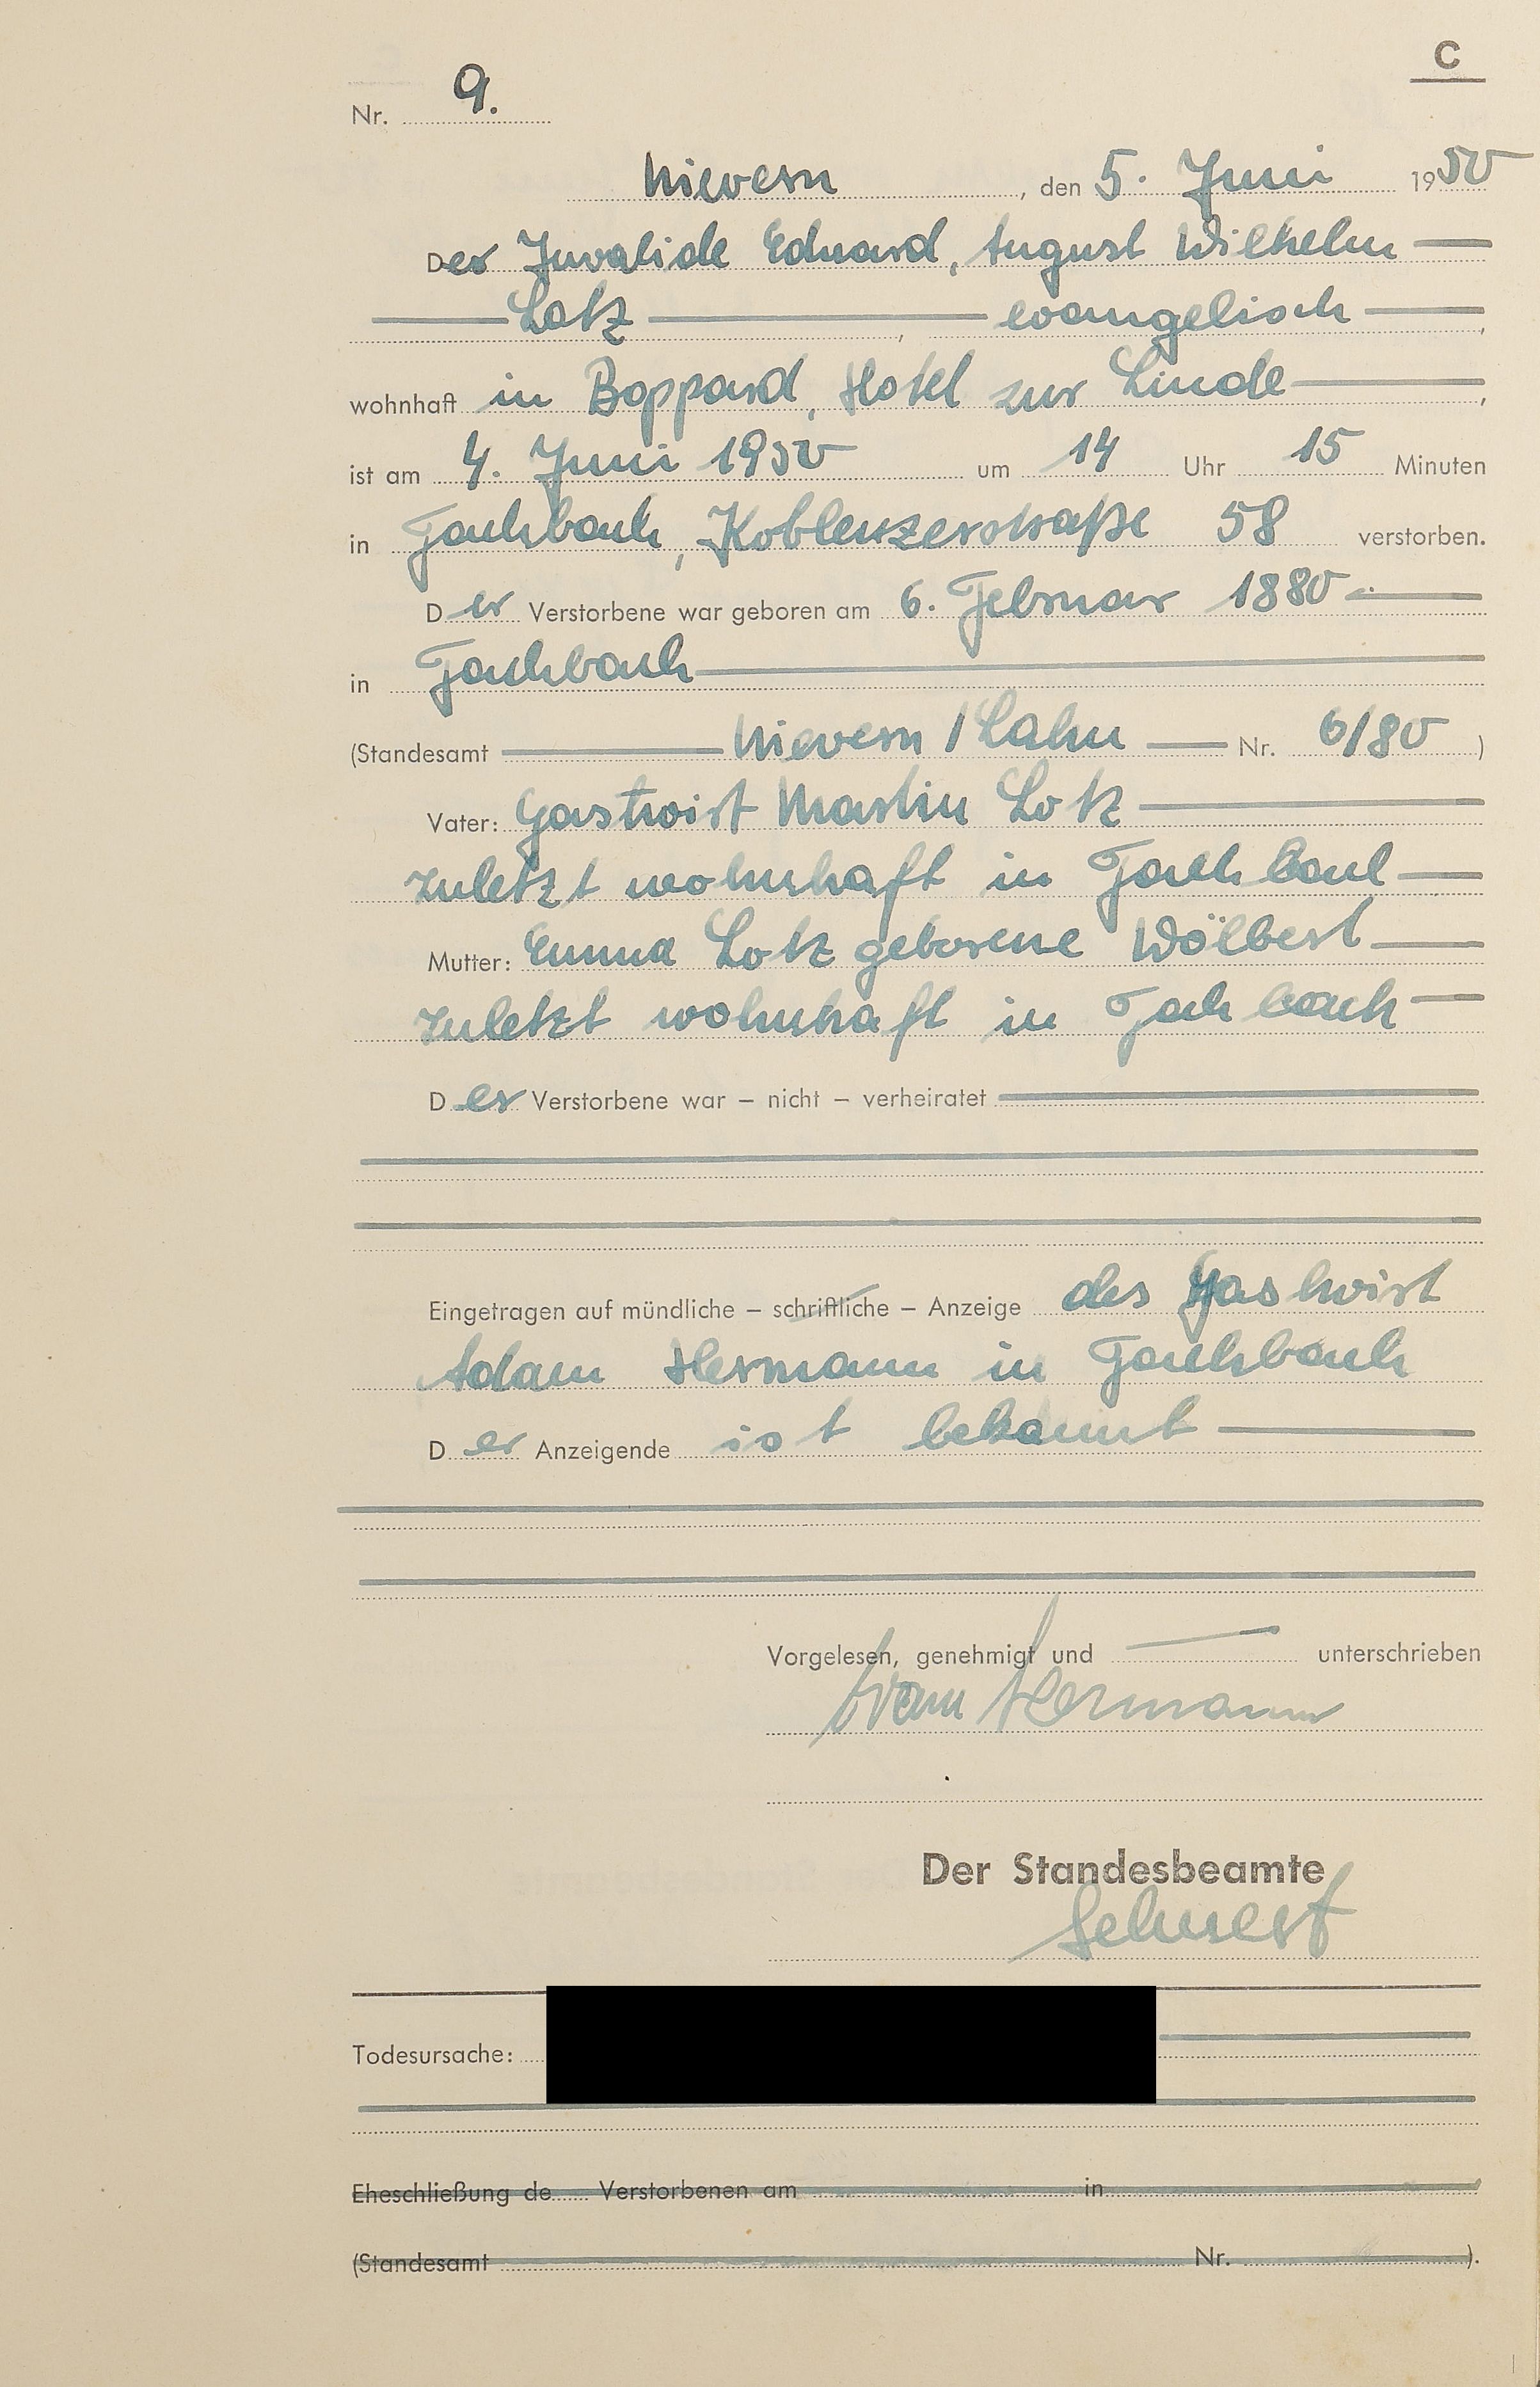 C
Nr. 9.
Nievern, den 5. Juni 1950
Der Invalide Eduard, August Wilhelm
Lotz, evangelisch,
wohnhaft in Boppard, Hotel zur Linde,
ist am 4. Juni 1950 um 14 Uhr 15 Minuten
in Fachbach, Koblenzerstraße 58 verstorben.
Der Verstorbene war geboren am 6. Februar 1880
in Fachbach
(Standesamt Nievern / Lahn Nr. 6/80)
Vater: Gastwirt Martin Lotz
zuletzt wohnhaft in Fachbach
Mutter: Emma Lotz geborene Wölbert
zuletzt wohnhaft in Fachbach
Der Verstorbene war – nicht – verheiratet
Eingetragen auf mündliche – schriftliche – Anzeige des Gastwirt
Adam Hermann in Fachbach
Der Anzeigende ist bekannt
Vorgelesen, genehmigt und unterschrieben
Adam Hermann
Der Standesbeamte
Todesursache:
Eheschließung de Verstorbenen am in
(Standesamt Nr. ).